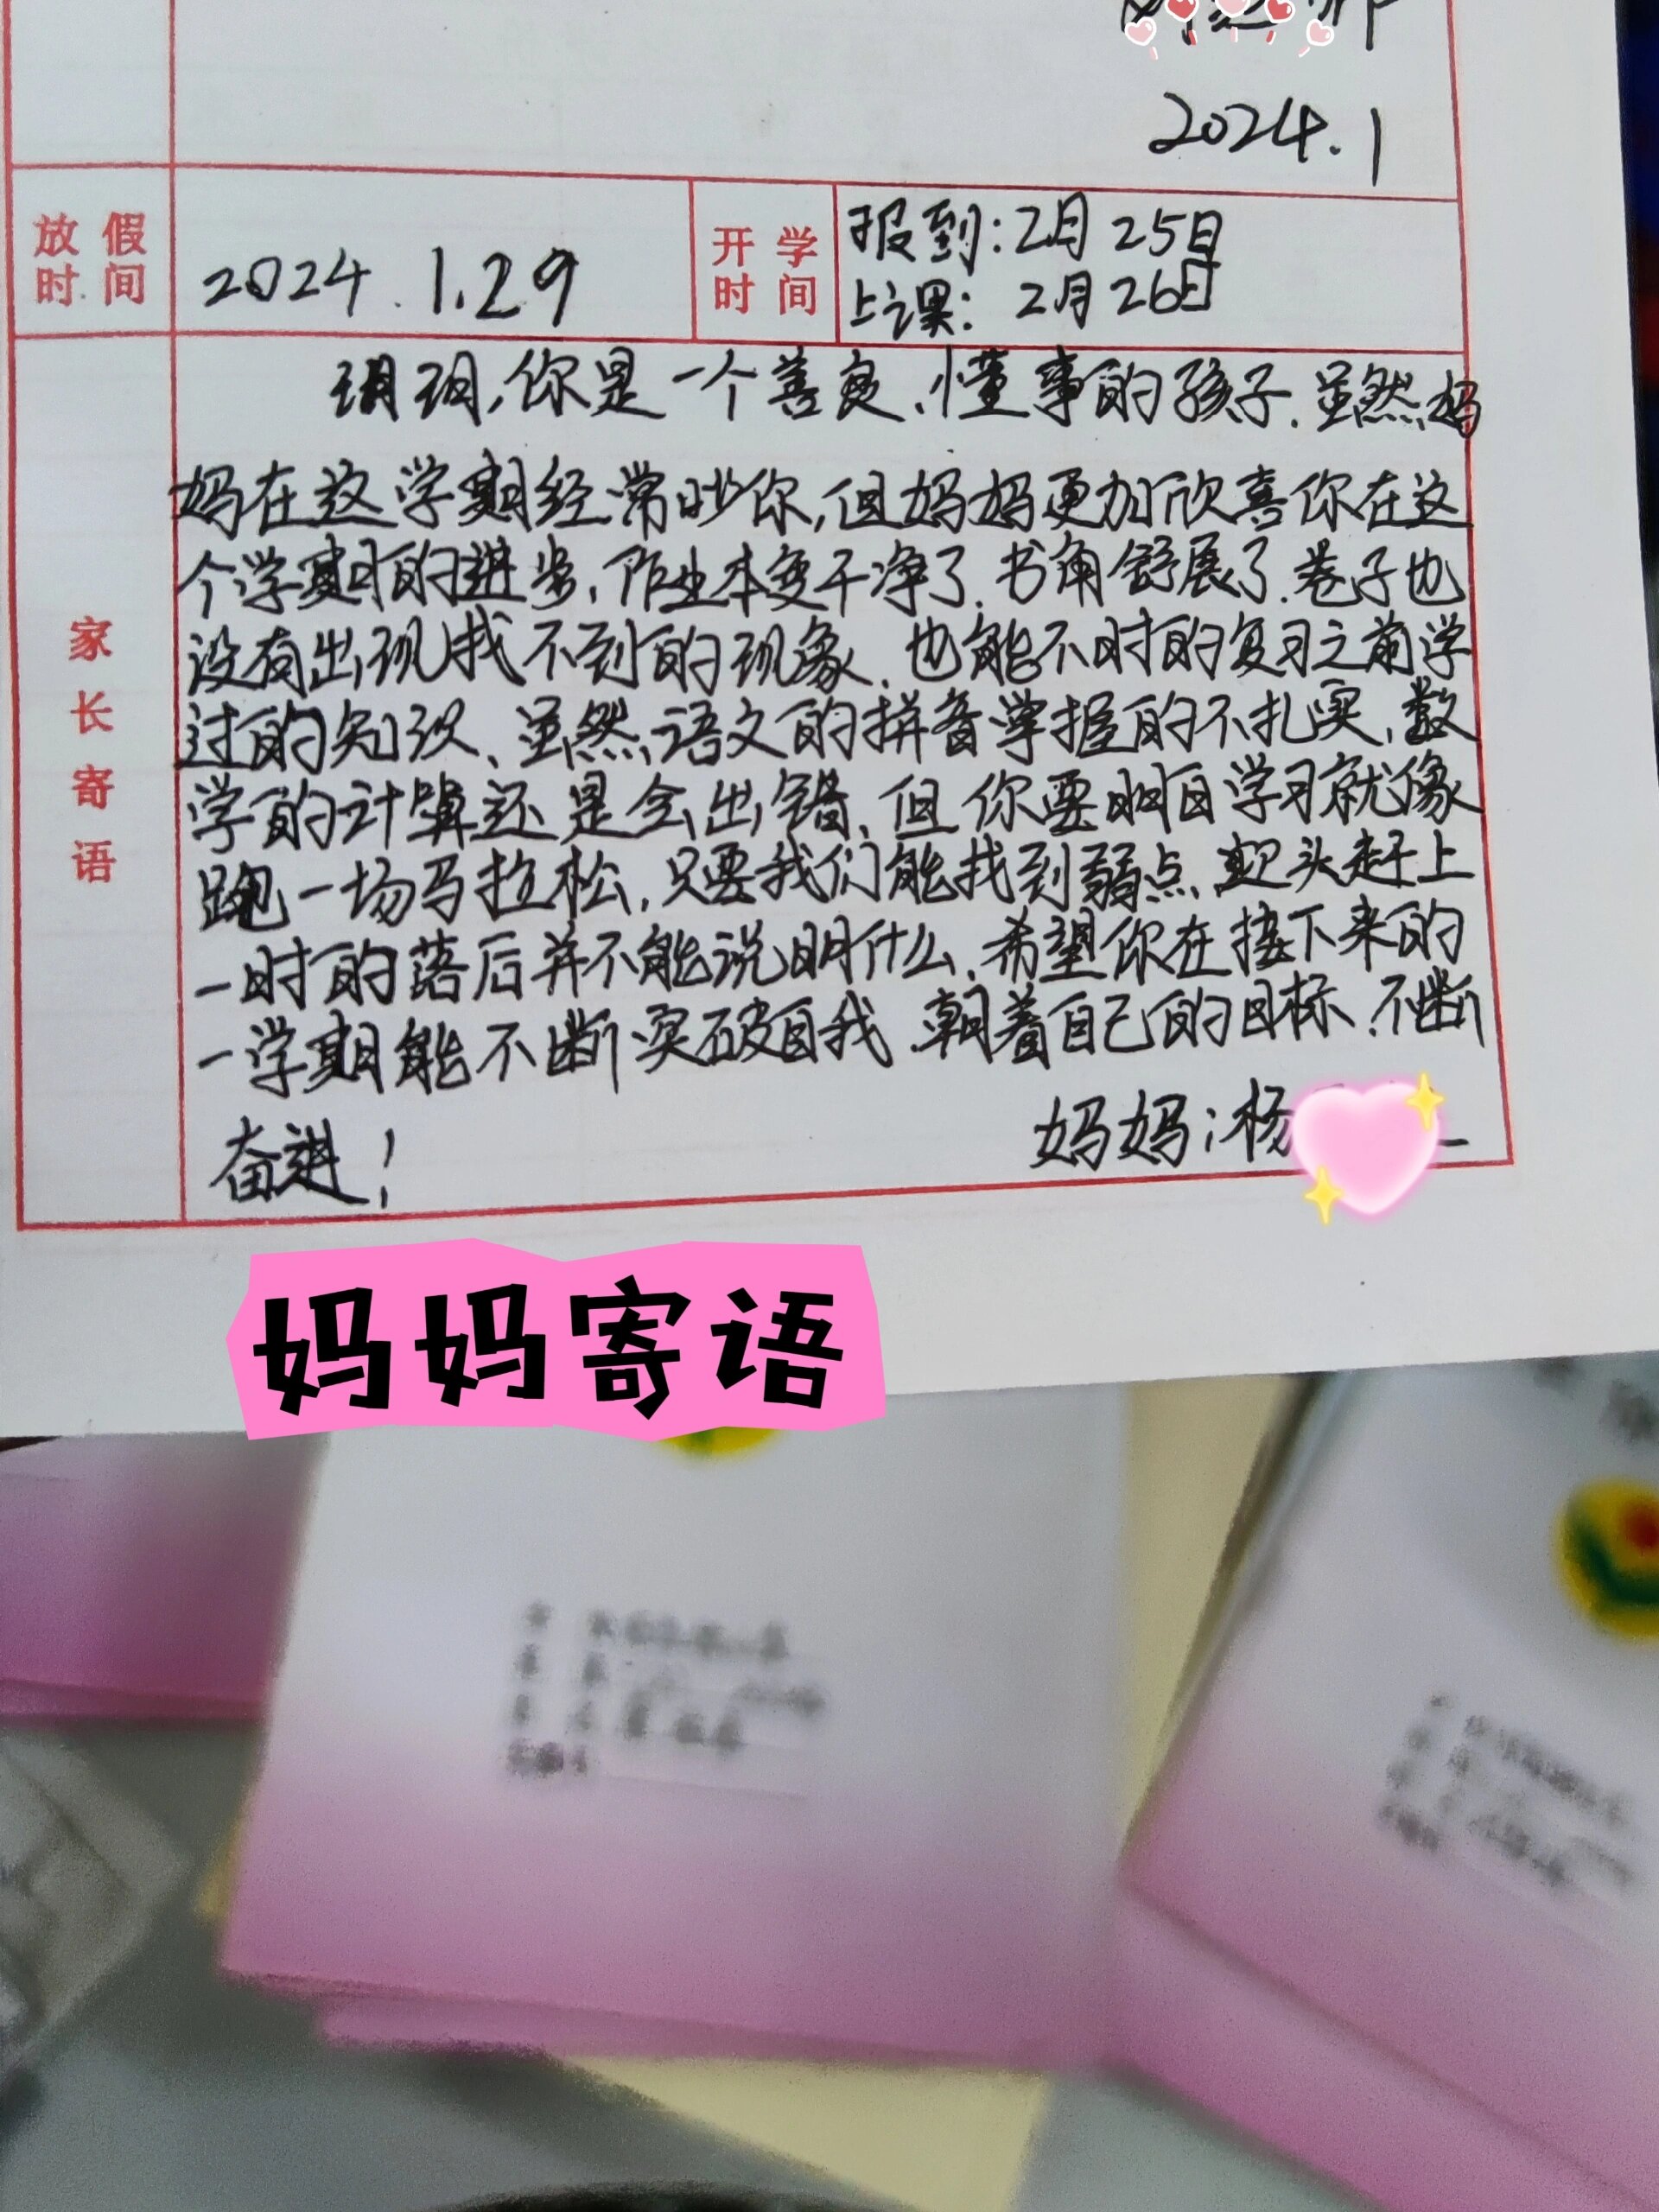 2024.1
放假时间
2024.1.29
开学时间
报到:2月25日
上课:2月26日
家长寄语
玥玥,你是一个善良、懂事的孩子.虽然妈
妈在这学期经常吵你,但妈妈更加欣喜你在这
个学期的进步,作业本变干净了.书角舒展了.卷子也
没有出现找不到的现象.也能不时的复习之前学
过的知识、虽然语文的拼音掌握的不扎实,数
学的计算还是会出错、但你要明白学习就像
跑一场马拉松,只要我们能找到弱点、迎头赶上
一时的落后并不能说明什么.希望你在接下来的
一学期能不断突破自我.朝着自己的目标.不断
奋进!
妈妈:杨
妈妈寄语